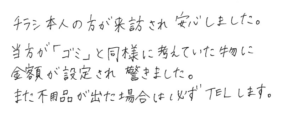 チラシ本人の方が来訪され 安心しました。
当方が「ゴミ」と同様に考えていた物に
金額が設定され 驚きました。
また不用品が出た場合は必ずTELします。